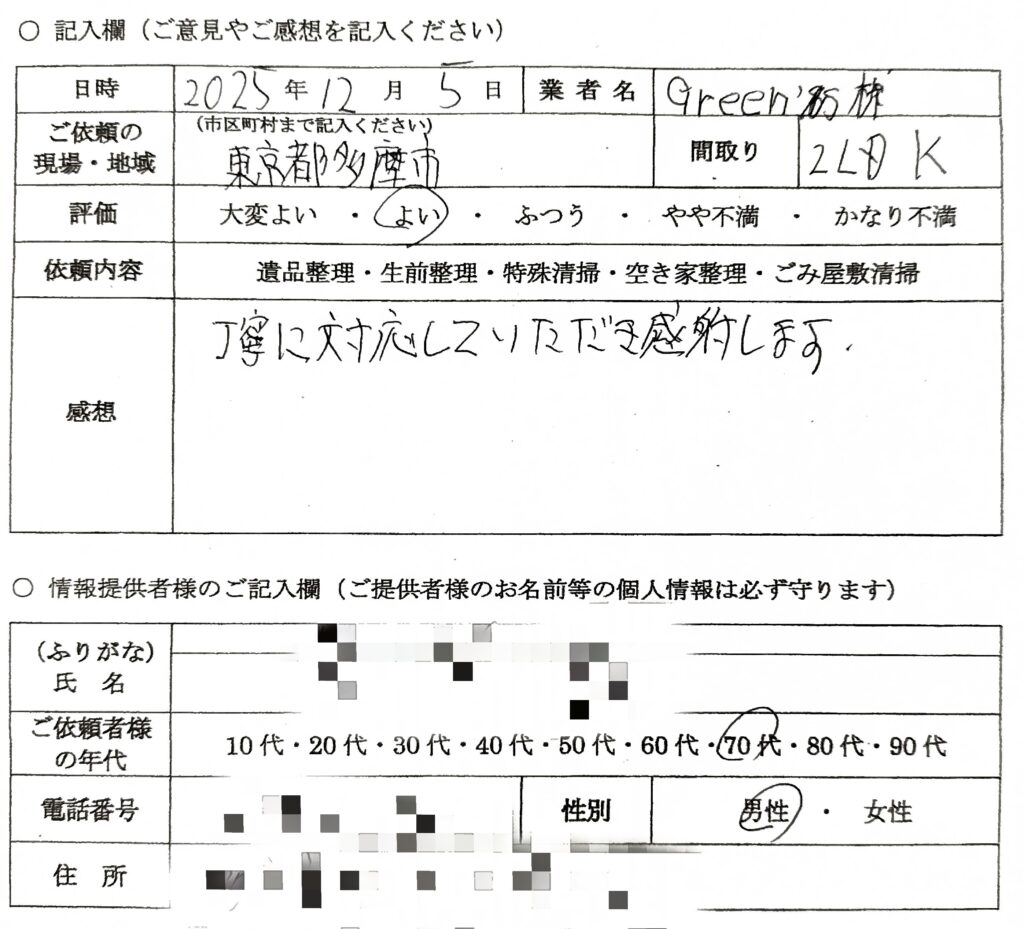 ○ 記入欄（ご意見やご感想を記入ください）
日時 2025年12月5日 業者名 Green's
ご依頼の現場・地域 (市区町村まで記入ください) 東京都多摩市 間取り 2LDK
評価 大変よい ・ よい ・ ふつう ・ やや不満 ・ かなり不満
依頼内容 遺品整理・生前整理・特殊清掃・空き家整理・ごみ屋敷清掃
感想 丁寧に対応していただき感謝します.
○ 情報提供者様のご記入欄（ご提供者様のお名前等の個人情報は必ず守ります）
（ふりがな）
氏 名
ご依頼者様の年代 10代・20代・30代・40代・50代・60代・70代・80代・90代
電話番号 性別 男性 ・ 女性
住 所